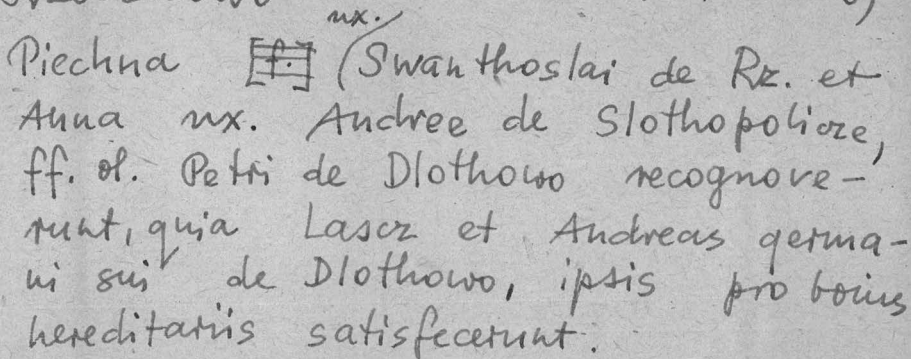 ux.
Piechna (Swanthoslai de Rz. et
Anna ux. Andree de Slothopolicze,
ff. ol. Petri de Dlothowo recognove-
runt, quia Lascz et Andreas germa-
ni sui de Dlothowo, ipsis pro bonis
hereditariis satisfecerunt.